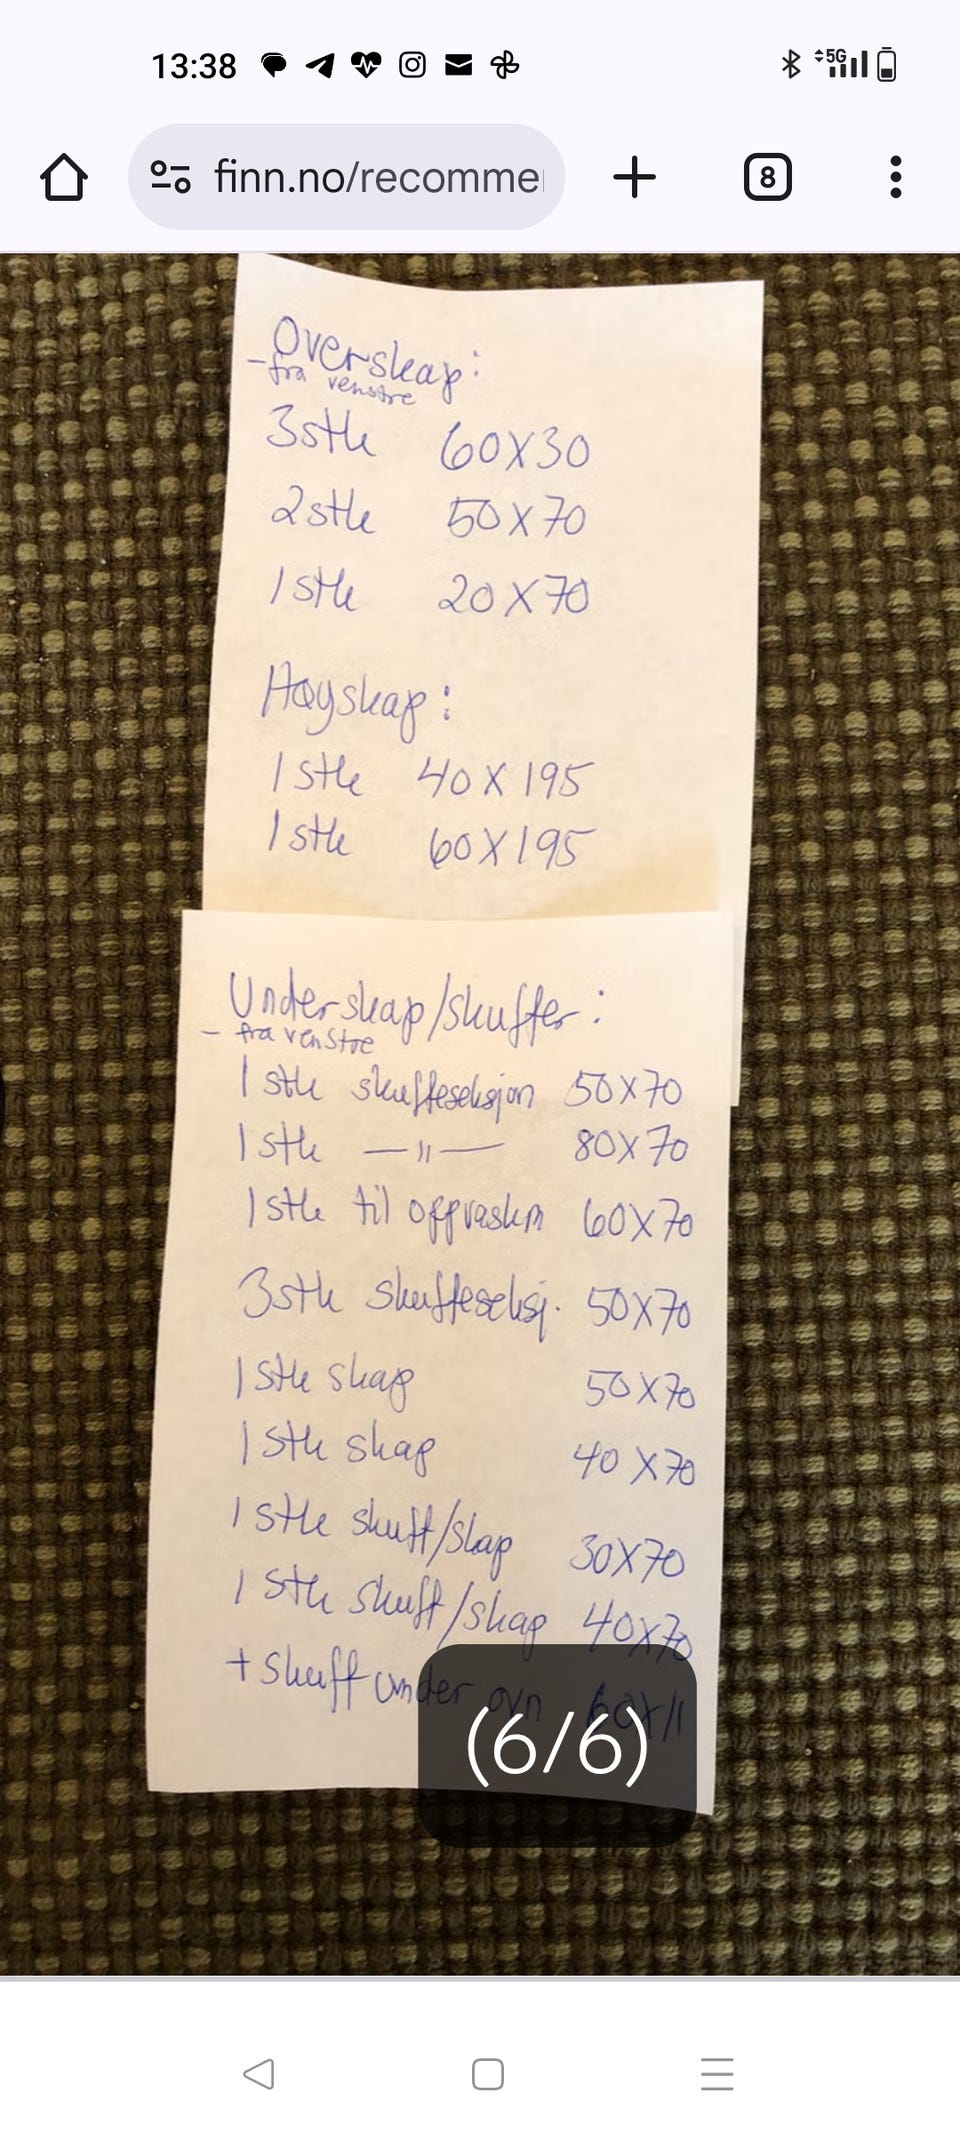 13:38
5G
finn.no/recomme
8
Overskap:
- fra venstre
3stk 60X30
2stk 50X70
1stk 20X70
Høyskap:
1stk 40X195
1stk 60X195
Underskap/skuffer:
- fra venstre
1stk skuffeseksjon 50X70
1stk —"— 80X70
1stk til oppvaskm 60X70
3stk skuffeseksj. 50X70
1stk skap 50X70
1stk skap 40X70
1stk skuff/skap 30X70
1stk skuff/skap 40X70
+ skuff under ovn 60X11
(6/6)